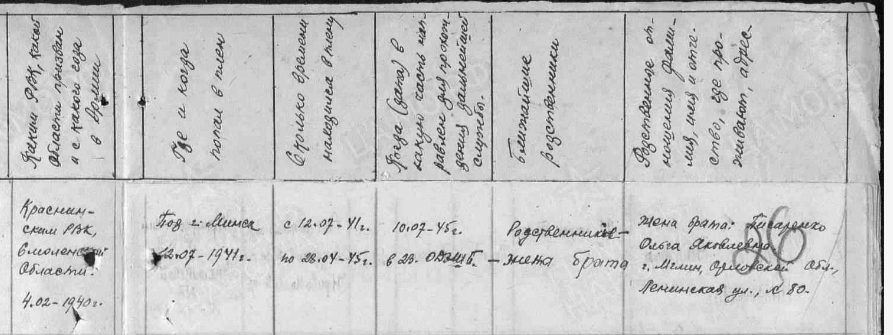 Каким РВК, какой
области призван
и с какого года
в Армии
Где и когда
попал в плен
Сколько времени
находился в плену
Когда (дата) в
какую часть нап-
равлен для прохож-
дения дальнейшей
службы.
Ближайшие
родственники
Родственное от-
ношения фами-
лия, имя и отче-
ство, где про-
живают, адрес.
Краснин-
ским РВК,
Смоленской
Области.
4.02-1940г.
Под г. Минск
12.07-1941г.
с 12.07-41г.
по 28.04-45г.
10.07-45г.
в 23.
Родственников-
-жена брата
Жена брата: Писаренко
Ольга Яковлевна
г. Мглин, Орловской Обл.,
Ленинская ул., № 80.